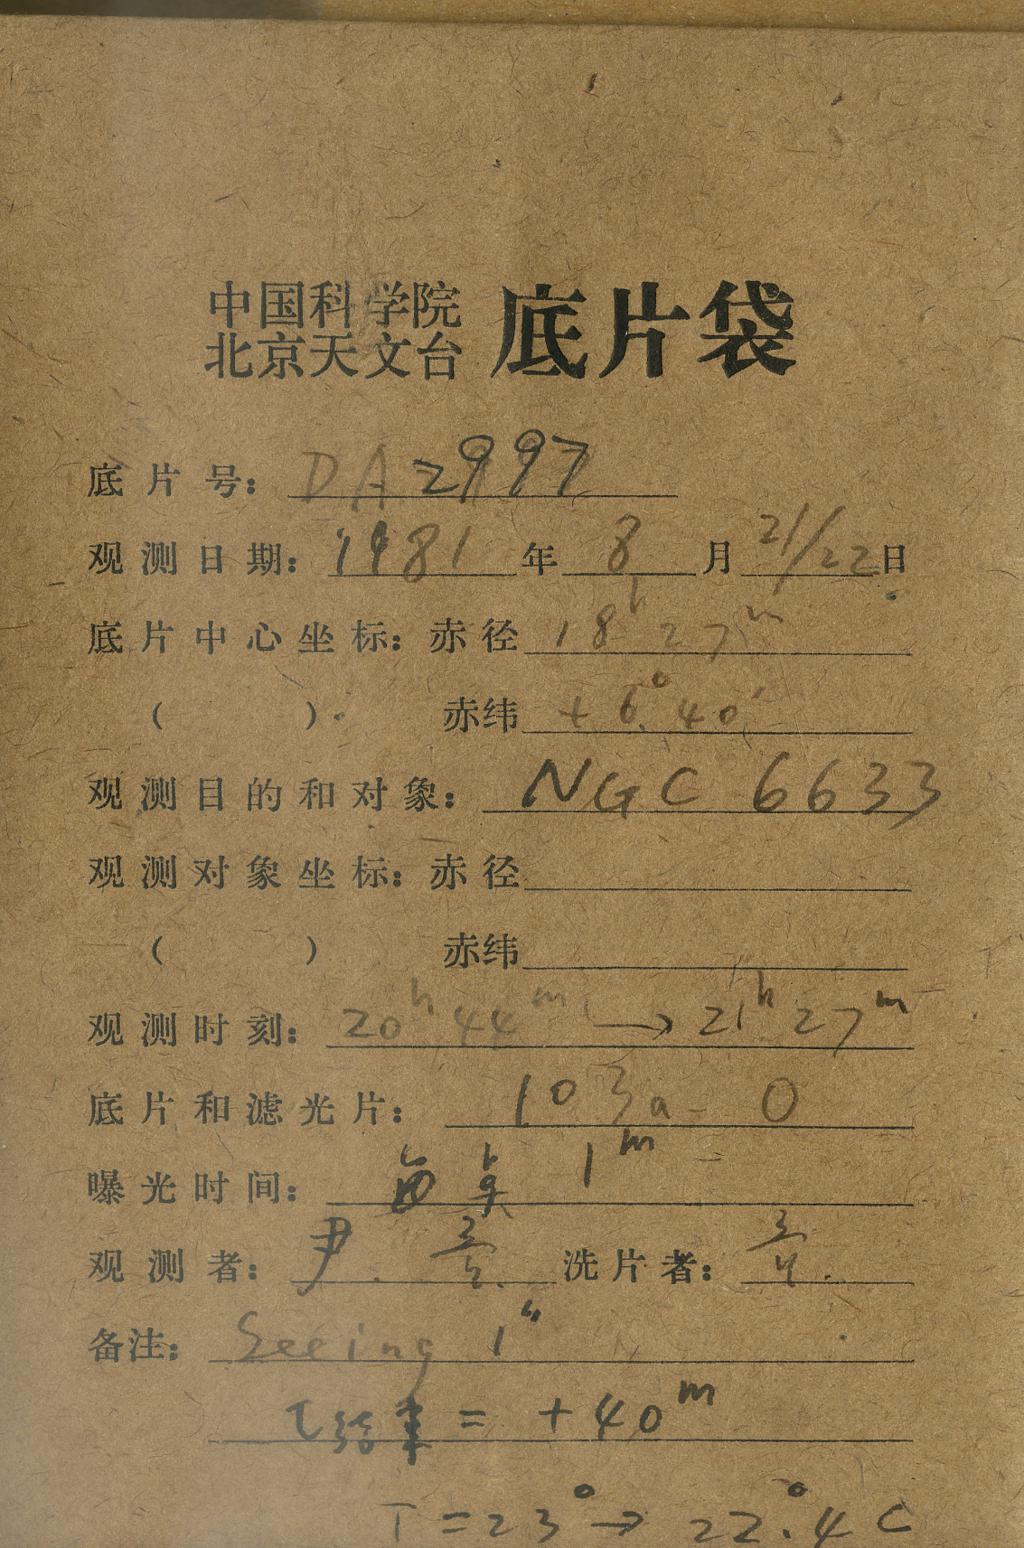 中国科学院
北京天文台 底片袋
底片号: DA2997
观测日期: 1981年 8月 21/22日
底片中心坐标: 赤径 18h 27m
( ) 赤纬 +6° 40′
观测目的和对象: NGC 6633
观测对象坐标: 赤径
( ) 赤纬
观测时刻: 20h 44m → 21h 27m
底片和滤光片: 103a-O
曝光时间: 1m
观测者: 尹. 洗片者:
备注: Seeing 1″
t结束 = +40m
T = 23° → 22°.4 C